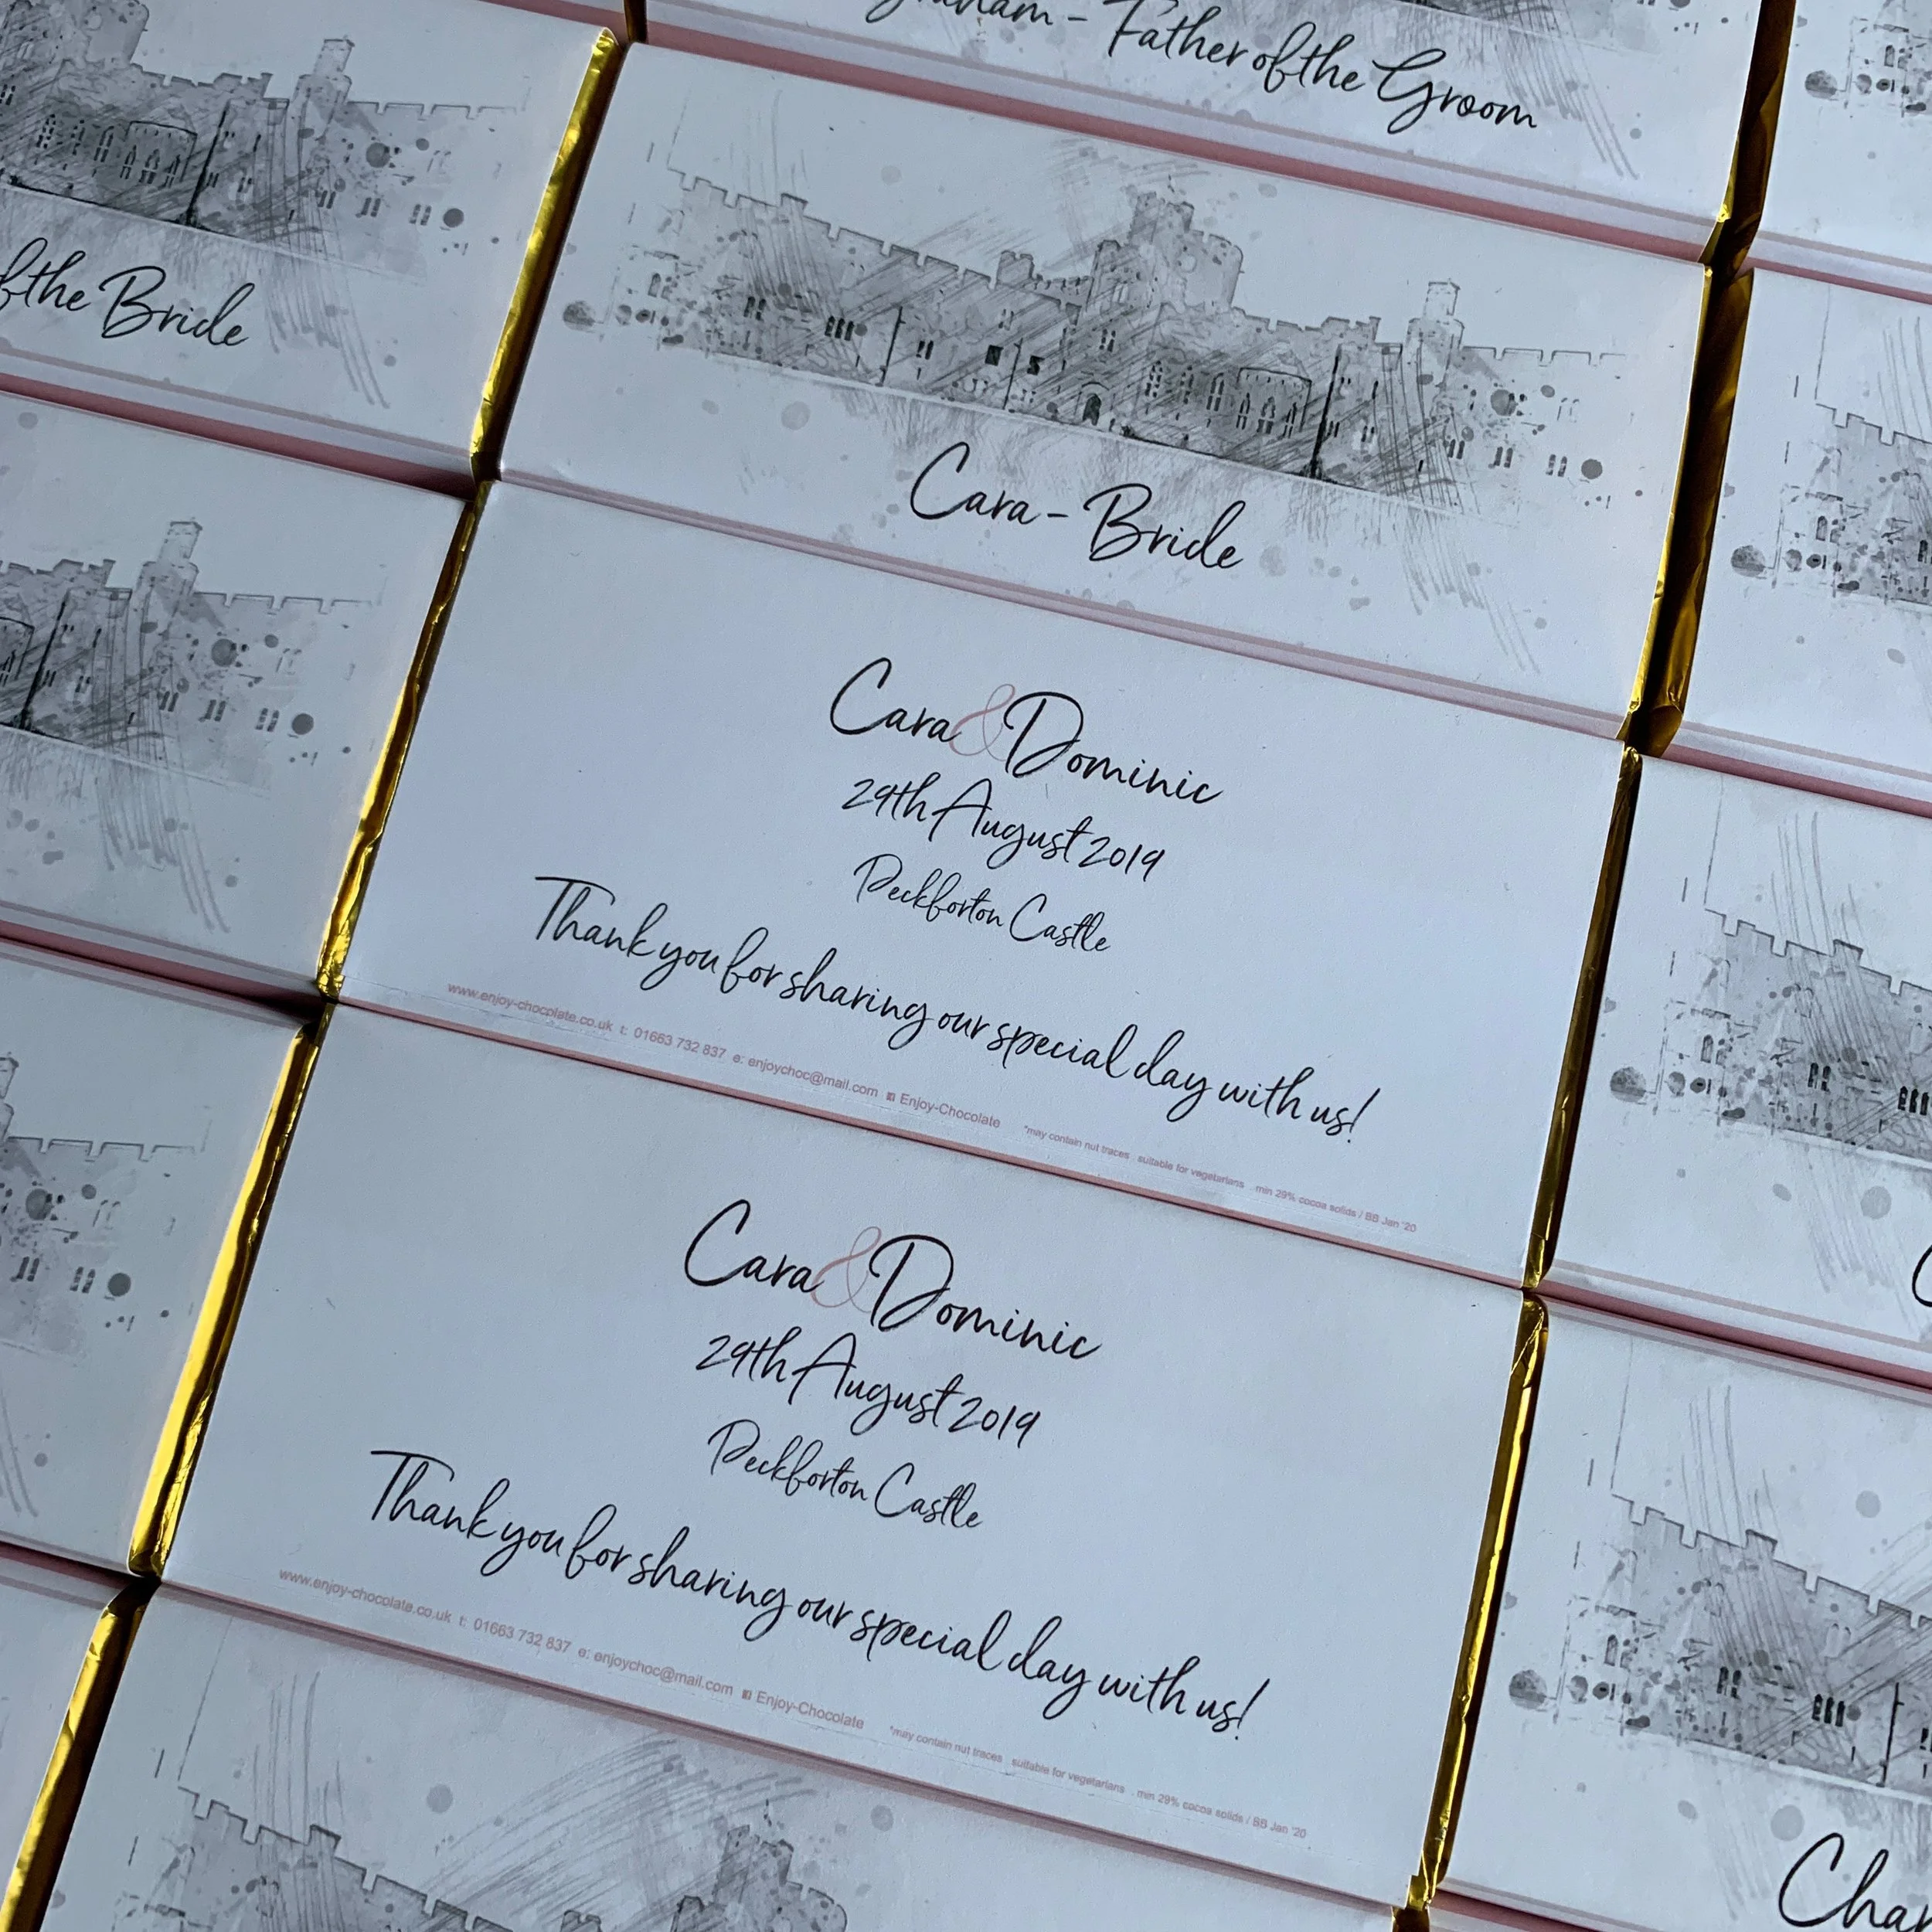 Father of the Groom
of the Bride
Cara - Bride
Cara & Dominic
29th August 2019
Peckforton Castle
Thank you for sharing our special day with us!
www.enjoy-chocolate.co.uk t: 01663 732 837 e: enjoychoc@mail.com Enjoy-Chocolate *may contain nut traces suitable for vegetarians min 29% cocoa solids / BB Jan '20
Cara & Dominic
29th August 2019
Peckforton Castle
Thank you for sharing our special day with us!
www.enjoy-chocolate.co.uk t: 01663 732 837 e: enjoychoc@mail.com Enjoy-Chocolate *may contain nut traces suitable for vegetarians min 29% cocoa solids / BB Jan '20